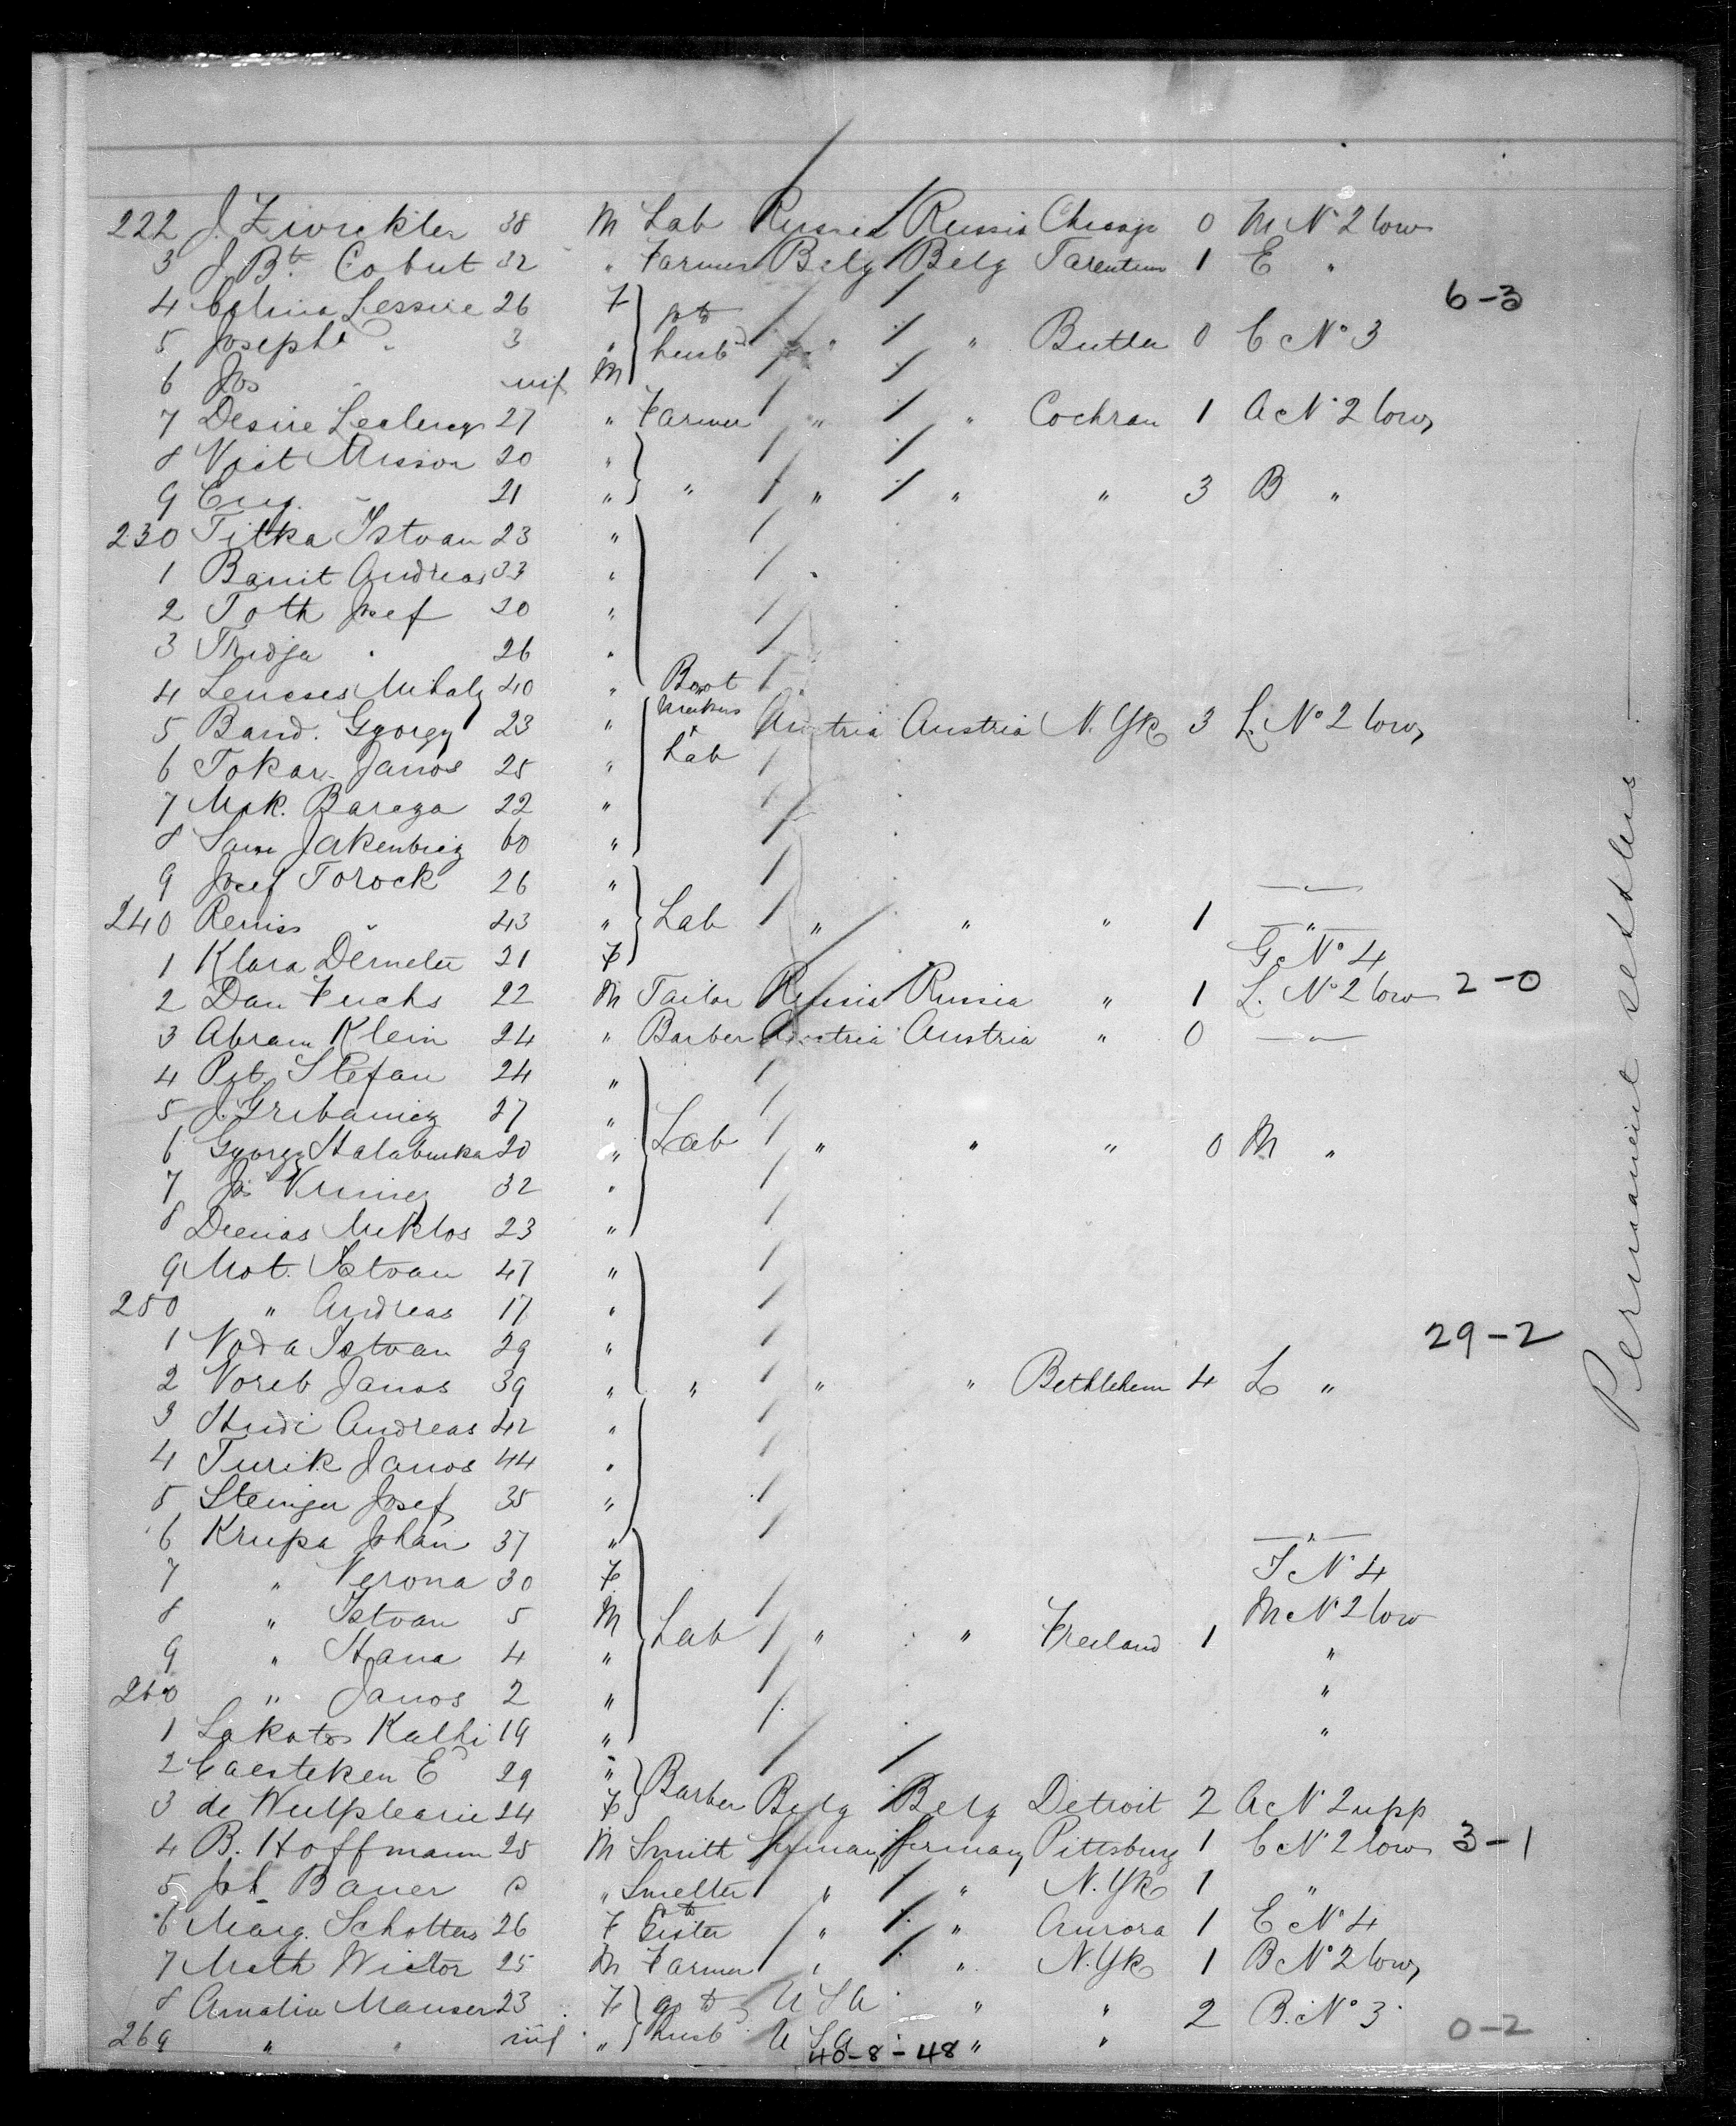 222 J. Zwickler 38 M Lab Russia Russia Chicago 0 M No 2 low
3 J. Bt. Cobut 32 " Farmer Belg Belg Tarentum 1 E "
4 Celina Lessire 26 F
6-3
5 Josephe " 3 " go to husbd " " Butler 0 C No 3
6 Jos " inf M
7 Desire Leclercq 27 " Farmer " " Cochran 1 A No 2 low
8 Vict Misson 20 "
9 Eug. " 21 " " " " " 3 B "
230 Titka Istvan 23 "
1 Banit Andreas 33 "
2 Toth Josef 30 "
3 Thidja " 26 "
4 Lencses Mihaly 40 " Boot
5 Band. Gyorgy 23 " makers & Lab Austria Austria N. Yk 3 L. No 2 low
6 Tokar Janos 25 "
7 Mak. Barega 22 "
8 Sam Jakenbieg 60 "
9 Josef Torock 26 " "
240 Remiss " 43 " Lab " " " 1 "
1 Klara Demeter 21 F G. No 4
2 Dan Fuchs 22 M Tailor Russia Russia " 1 L. No 2 low 2-0
3 Abram Klein 24 " Barber Austria Austria " 0 "
4 Pet. Stefan 24 "
5 J. Gribanicz 27 "
6 Gyorgy Halabuska 20 " Lab " " " 0 M "
7 Jos 32 "
8 Miklos 23 "
9 Mot. Istvan 47 "
250 " Andreas 17 "
1 Voda Istvan 29 "
29-2
2 Voreb Janos 39 " " " " Bethlehem 4 L "
3 Hudi Andreas 42 "
4 Turik Janos 44 "
5 Steinger Josef 35 "
6 Krupa Johan 37 " "
7 " Verona 30 F I No 4
8 " Istvan 5 M M No 2 low
9 " Hana 4 " Lab " " Freeland 1 "
260 " Janos 2 " "
1 Lakatos Kathi 19 " "
2 Caesteken E 29 "
3 de Wulf 24 F Barber Belg Belg Detroit 2 A No 2 upp
4 B. Hoffmann 25 M Smith Germany Germany Pittsburg 1 C No 2 low 3-1
5 Joh. Bauer " Smelter " " N. Yk 1 "
6 Marg. Scholtes 26 F to Sister " " Aurora 1 E No 4
7 Math Wistor 25 M Farmer " " N. Yk 1 B No 2 low
8 Amalia Mauser 23 F go to U S A " " 2 B. No 3
269 " " inf " husb U S A " " 0-2
40-8-48
Permanent settlers